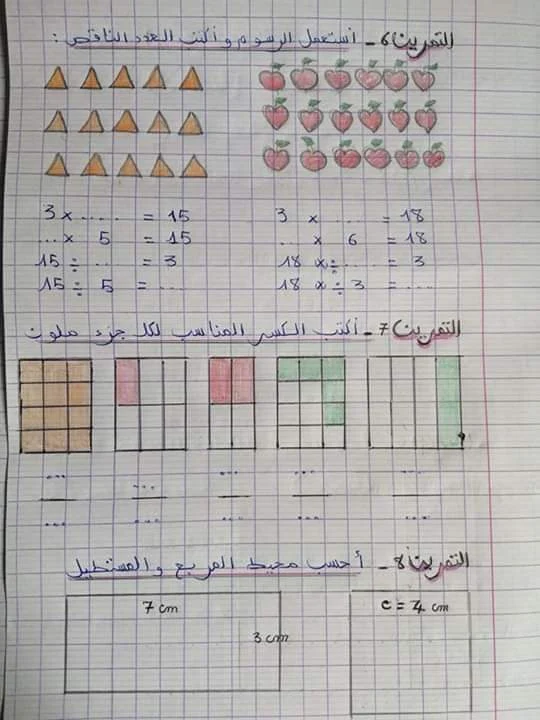 التمرين 6 - أستعمل الرسوم وأكتب العدد الناقص :
3 x .... = 15
... x 5 = 15
15 ÷ .. = 3
15 ÷ 5 = ...
3 x ... = 18
.. x 6 = 18
18 x÷... = 3
18 x÷ 3 = ....
التمرين 7 - أكتب الكسر المناسب لكل جزء ملون
... ... ... ... ...
... ... ... ... ...
التمرين 8 - أحسب محيط المربع والمستطيل
7 cm
3 cm
c = 4 cm